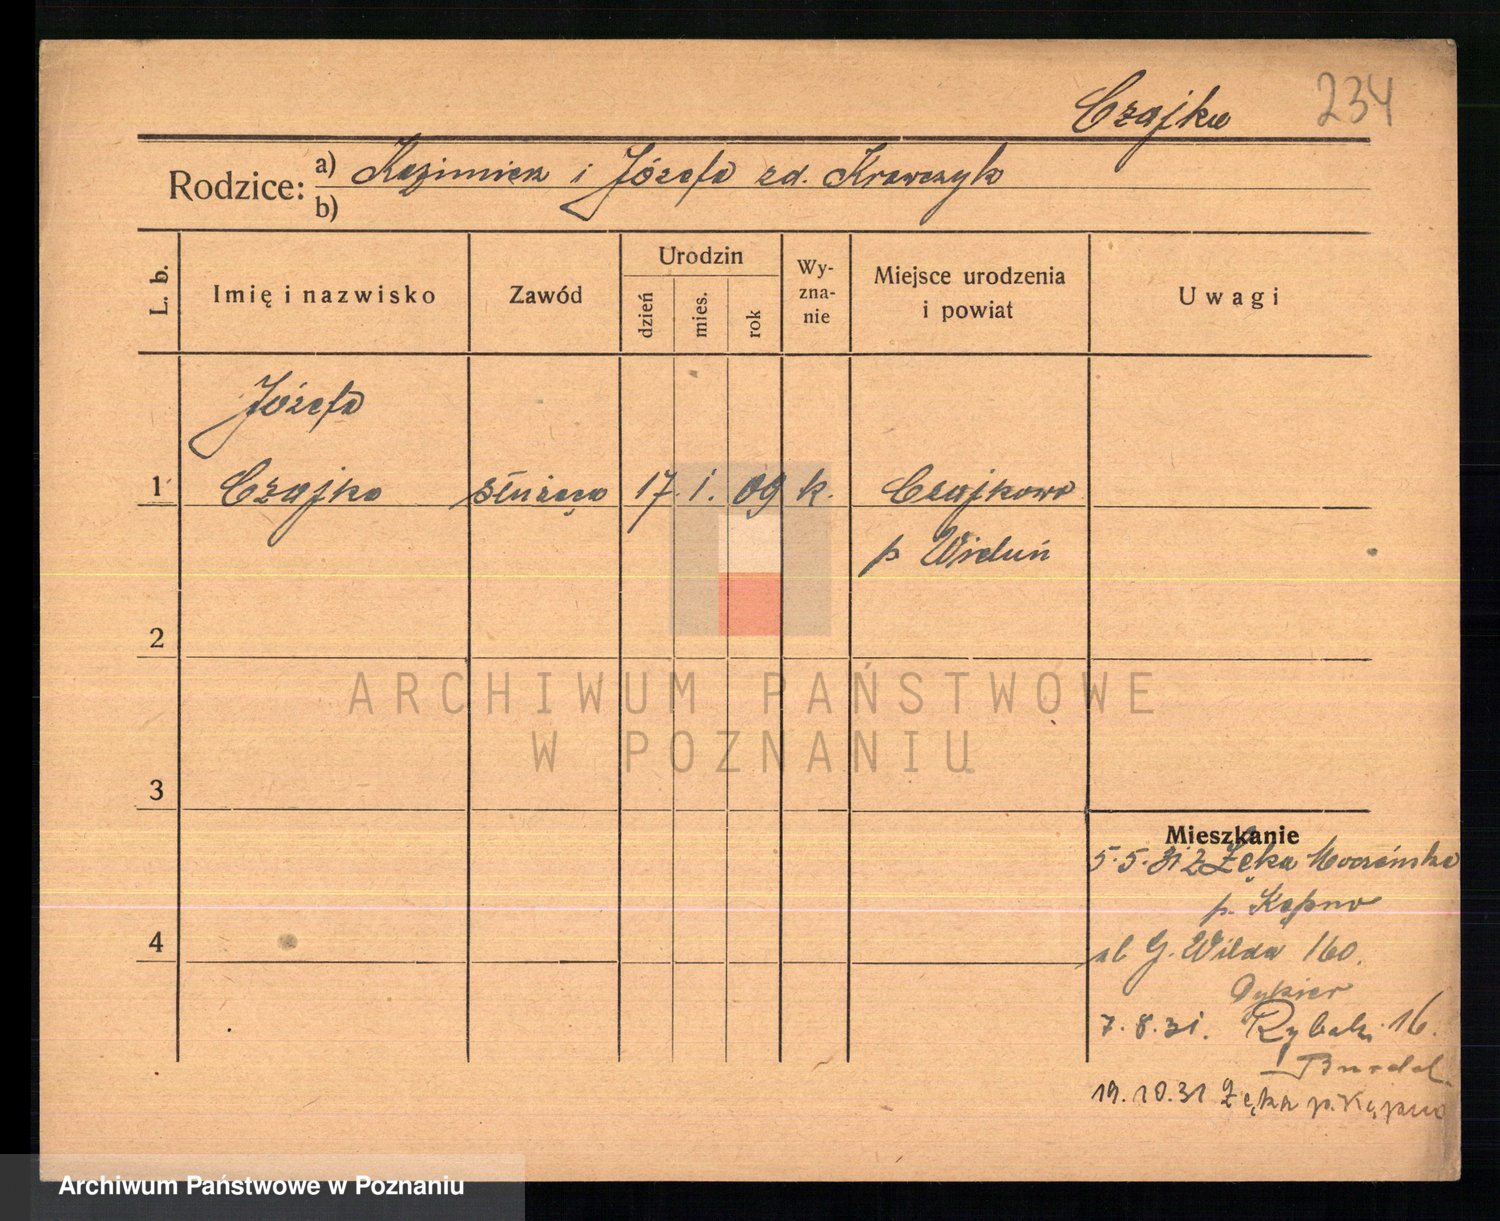 Czajka 234
Rodzice: a) Kazimierz i Józefa zd. Krawczyk
b)
L. b. Imię i nazwisko Zawód Urodzin dzień mies. rok Wyznanie Miejsce urodzenia i powiat Uwagi
Józefa
1 Czajka służąca 17. 1. 09 k. Czajkowo
p Wieluń
2
3
Mieszkanie
5.5.31 z Łęka Mroczeńska
p. Kępno
4
ul G. Wilda 160.
7.8.31. Rybaki 16.
19.10.31 Łęka p. Kępno
ARCHIWUM PAŃSTWOWE
W POZNANIU
Archiwum Państwowe w Poznaniu